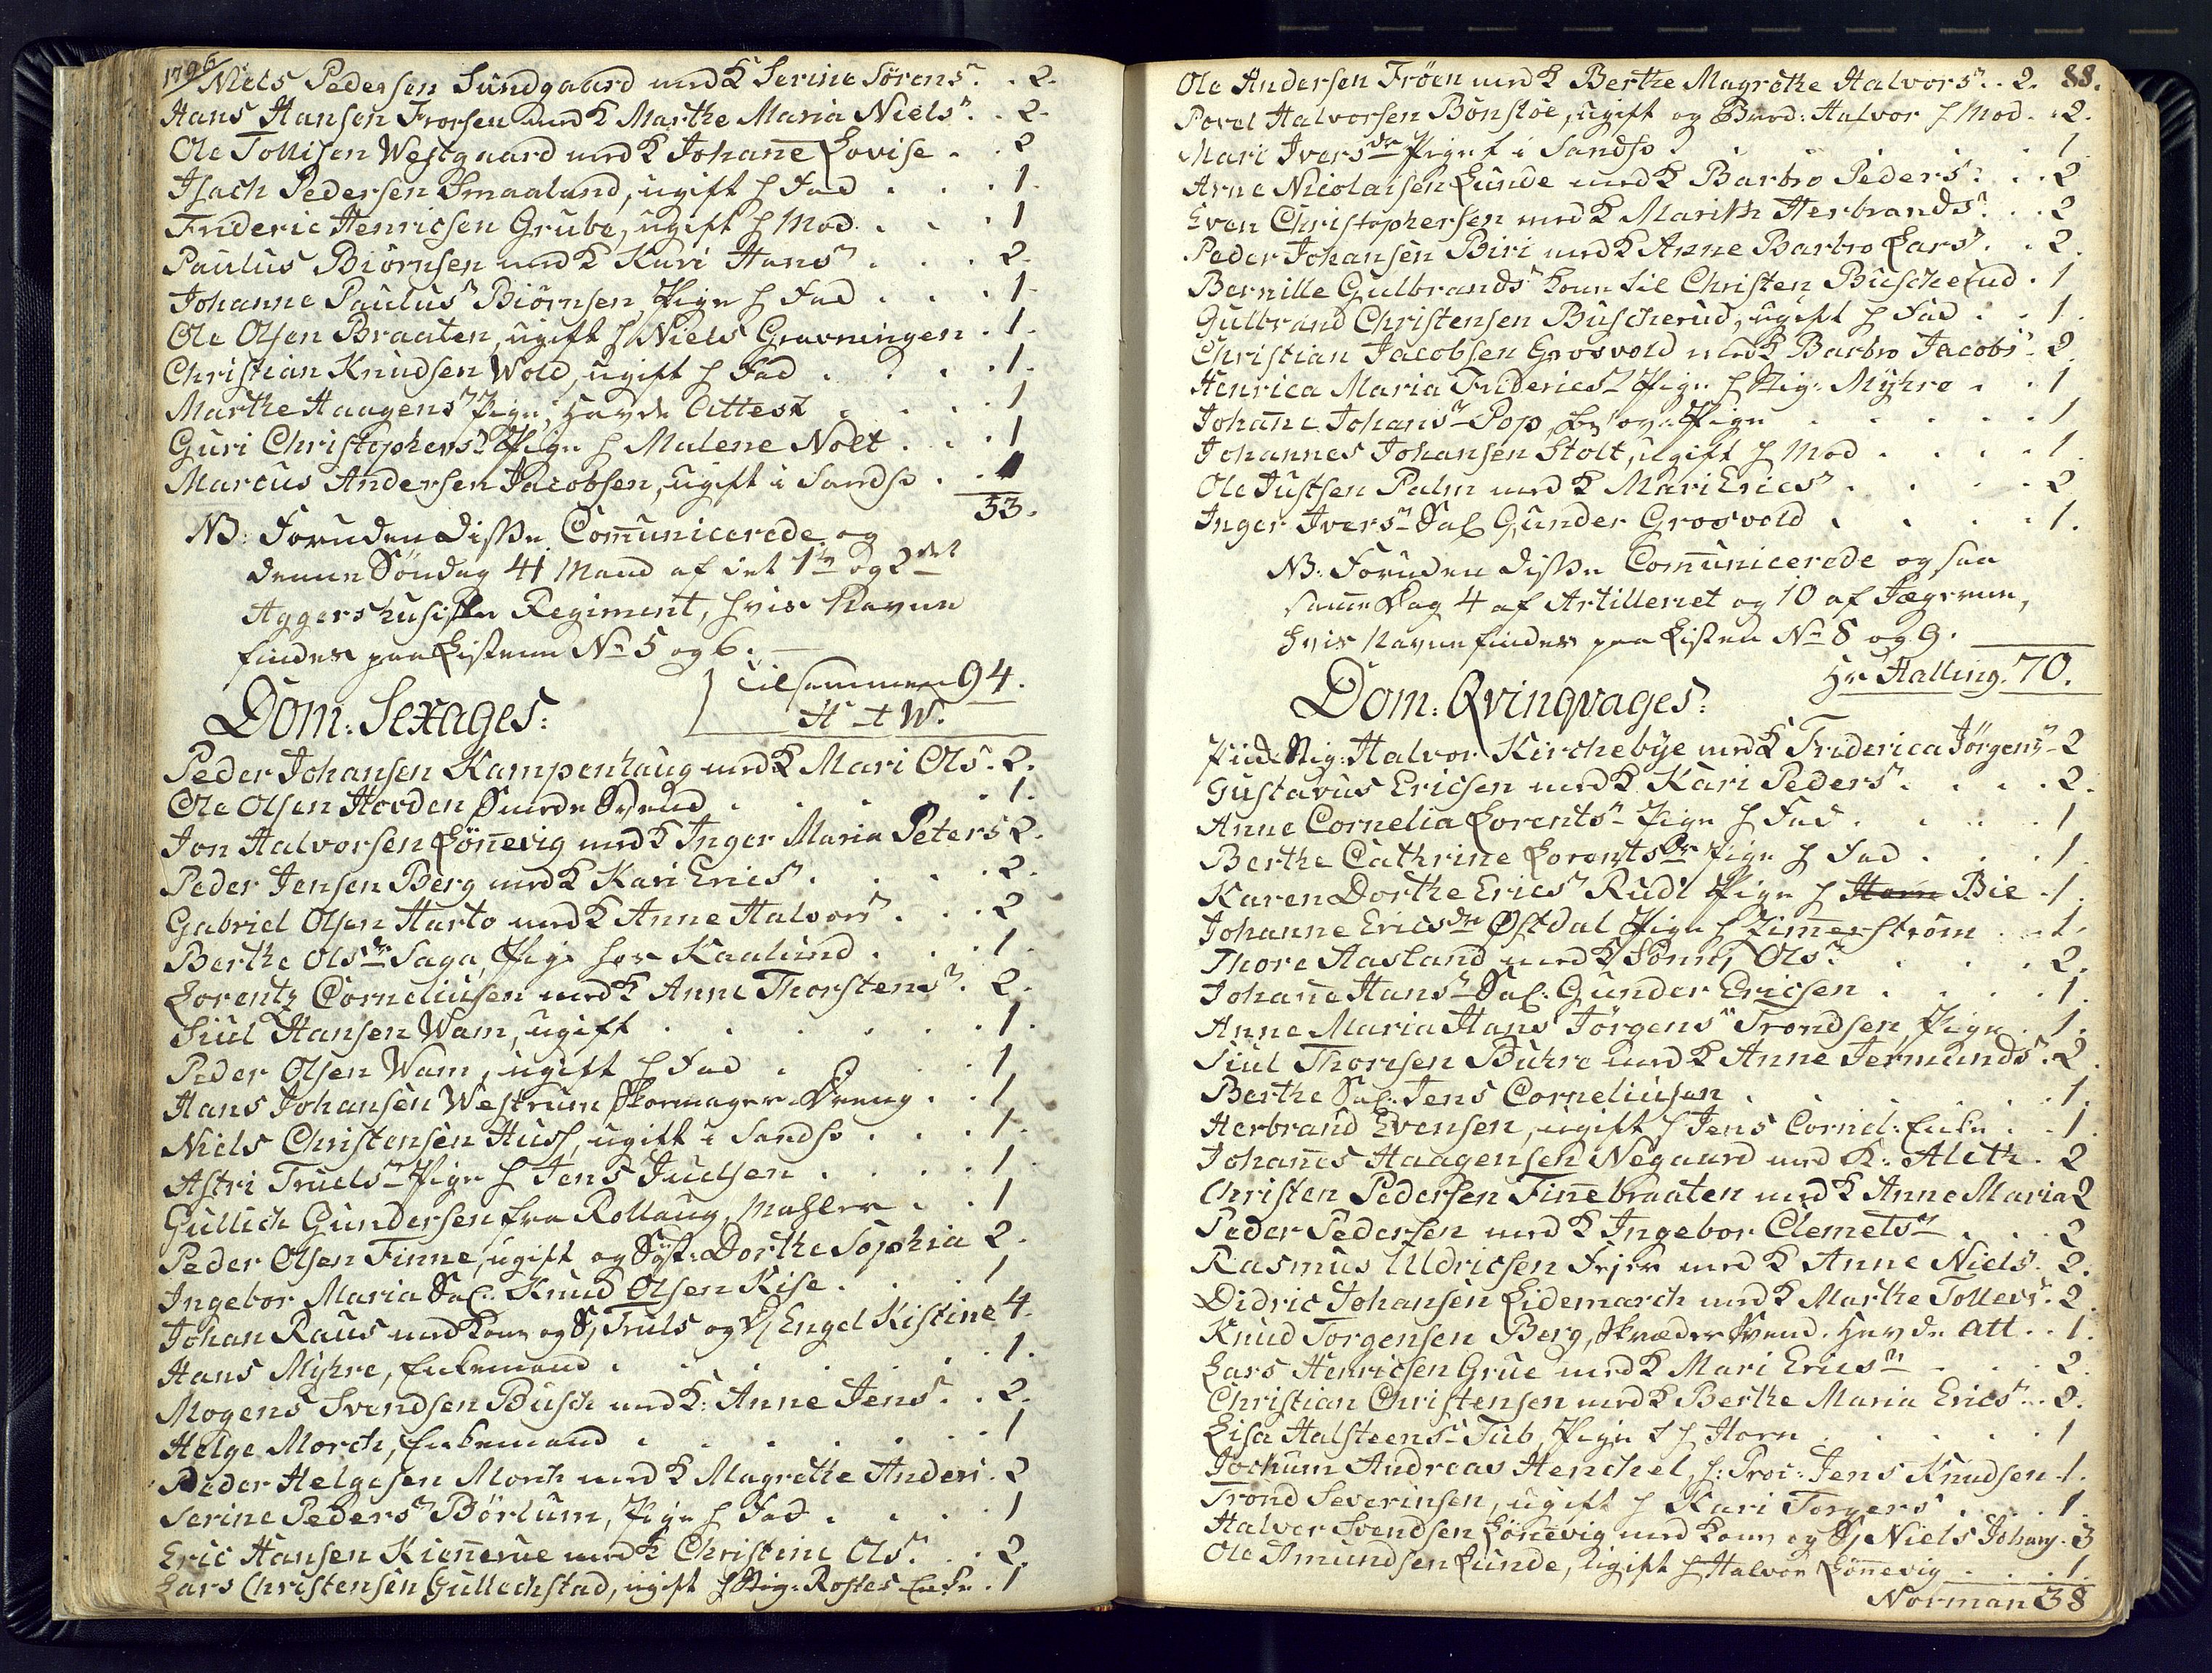 1796
Niels Pedersen Sundgaard med K Serine Sörens. . 2.
Hans Hansen Frorsen med K Marthe Maria Niels. . 2.
Ole Tollisen Westgaard med K Johañe Lovise . . 2
Isach Pedersen Smaaland, ugift h Fad . . . 1.
Frideric Henricsen Grube, ugift h Mod. . . 1
Paulus Biörnsen med K Kari Hans . . . 2.
Johanne Paulus Biörnsen, Pige h Fad . . . 1.
Ole Olsen Braaten, ugift h Niels Gravningen . 1.
Christian Knudsen Wold, ugift h Fad . . . 1.
Marthe Haagens Pige, havde Attest . . . 1
Guri Christophers Pige h Malene Nolt . . . 1
Marcus Andersen Jacobsen, ugift i Sandsv . . 1
53.
NB: Foruden disse Com̃unicerede og
denne Söndag 41 Mand af det 1te og 2det
Aggershusiske Regiment, hvis Navne
findes paa Listerne No 5 og 6.
Tilsammen 94.
H + W.
Dom: Sexages:
Peder Johansen Kampenhaug med K Mari Ols. 2.
Ole Olsen Hovden Smede Svend . . . 1.
Jon Halvorsen Löñevig med K Inger Maria Peters 2.
Peder Jensen Berg med K Kari Erics . . . 2.
Gabriel Olsen Harto med K Anne Halvors . . . 2
Berthe Olsdr Saga, Pige hos Kaalund . . 1.
Lorentz Corneliusen med K Anne Thorstens. 2.
Siul Hansen Wam, ugift . . . . . 1.
Peder Olsen Wam, ugift h Fad . . . 1
Hans Johansen Westrum Skomager Dreng . . 1
Niels Christensen Huss, ugift i Sandsv . . . 1.
Astri Truels Pige h Jens Juelsen . . . . 1
Gullich Gundersen fra Rollaug, Mahler . . 1
Peder Olsen Finne, ugift og Syst: Dorthe Sophia 2.
Ingebor Maria Sal. Knud Olsen Kise . . . 1
Johan Raus med Kone og S, Truls og D, Engel Kistine 4.
Hans Myhre, Enkemand . . . . . 1.
Mogens Svendsen Busch med K: Anne Jens . . 2.
Helge Morch, Enkemand . . . . . 1
Peder Helgesen Morch med K Magrethe Anders . 2
Serine Peders Börlum, Pige h Fad . . . 1
Eric Hansen Kieñerue med K Christine Ols . . . 2.
Lars Christensen Gullichstad, ugift h Sig: Rostes Enke . 1
88.
Ole Andersen Fröen med K Berthe Magrethe Halvors. . 2.
Povel Halvorsen Bonsloe, ugift og Brod: Halvor h Mod. . 2.
Mari Iversdr Pige i Sandsv . . . . 1.
Arne Nicolaisen Lunde med K Barbro Peders . . . 2
Even Christophersen med K Marith Herbrands. . . 2
Peder Johansen Biri med K Anne Barbro Lars . . 2.
Bernille Gulbrands Kone til Christen Buscherud . 1
Gulbrand Christensen Buscherud, ugift h Fad . . 1.
Christian Jacobsen Grosvold med K Barbro Jacobs. 2.
Henrica Maria Friderics Pige h Sig: Myhre . . 1
Johañe Johans Pop, Pige . . . . . 1
Johannes Johansen Stolt, ugift h Mod . . . . 1.
Ole Justsen Palm med K Mari Erics . . . 2
Inger Ivers Sal. Gunder Grosvold . . . . 1.
NB: Foruden disse Com̃unicerede ogsaa
samme Dag 4 af Artilleriet og 10 af Jægerne,
hvis Navne findes paa Listen No 8 og 9.
Hr Halling. 70.
Dom: Qvinqvages:
Sig: Halvor Kirchebÿe med K Friderica Jörgens 2
Gustavus Ericsen med K Kari Peders . . . . 2.
Anne Cornelia Lorents Pige h Fad . . . . 1
Berthe Cathrine Lorentsdr Pige h Fad . . . 1.
Karen Dorthe Erics Rudi Pige h Horn Bie . 1.
Johanne Ericsdr Østdal Pige h Zim̃erström . . 1.
Thore Aasland med K Sönni Ols . . . 2.
Johañe Hans Sal: Gunder Ericsen . . . . 1.
Anne Maria Hans Jörgens Trondsen, Pige . 1.
Siul Thorsen Buhre med K Anne Jermunds. 2.
Berthe Sal: Jens Corneliusen . . . . . 1.
Herbrand Evensen, ugift h Jens Cornel: Enke . . 1.
Johañes Haagensen Negaard med K: Alith. 2
Christen Pedersen Fiñebraaten med K Anne Maria 2
Peder Pedersen med K Ingebor Clemets . . . 2
Rasmus Uldricsen Fejer med K Anne Niels. 2.
Didric Johansen Lidemarch med K Marthe Tollevs. 2.
Knud Torgensen Berg, Skræder Svend. havde Att. . 1.
Lars Henricsen Grue med K Mari Erics . . . 2.
Christian Christensen med K Berthe Maria Erics . 2.
Lisa Halsteens Tub Pige h Horn . . . . . 1
Jochum Andreas Henchel, h: Proc: Jens Knudsen. 1.
Trond Severinsen, ugift h Kari Torgers . . . 1.
Halvor Svendsen Löñevig med Kone og S, Niels Johang. 3
Ole Amundsen Lunde, ugift h Halvor Löñevig . . . 1.
Norman 38